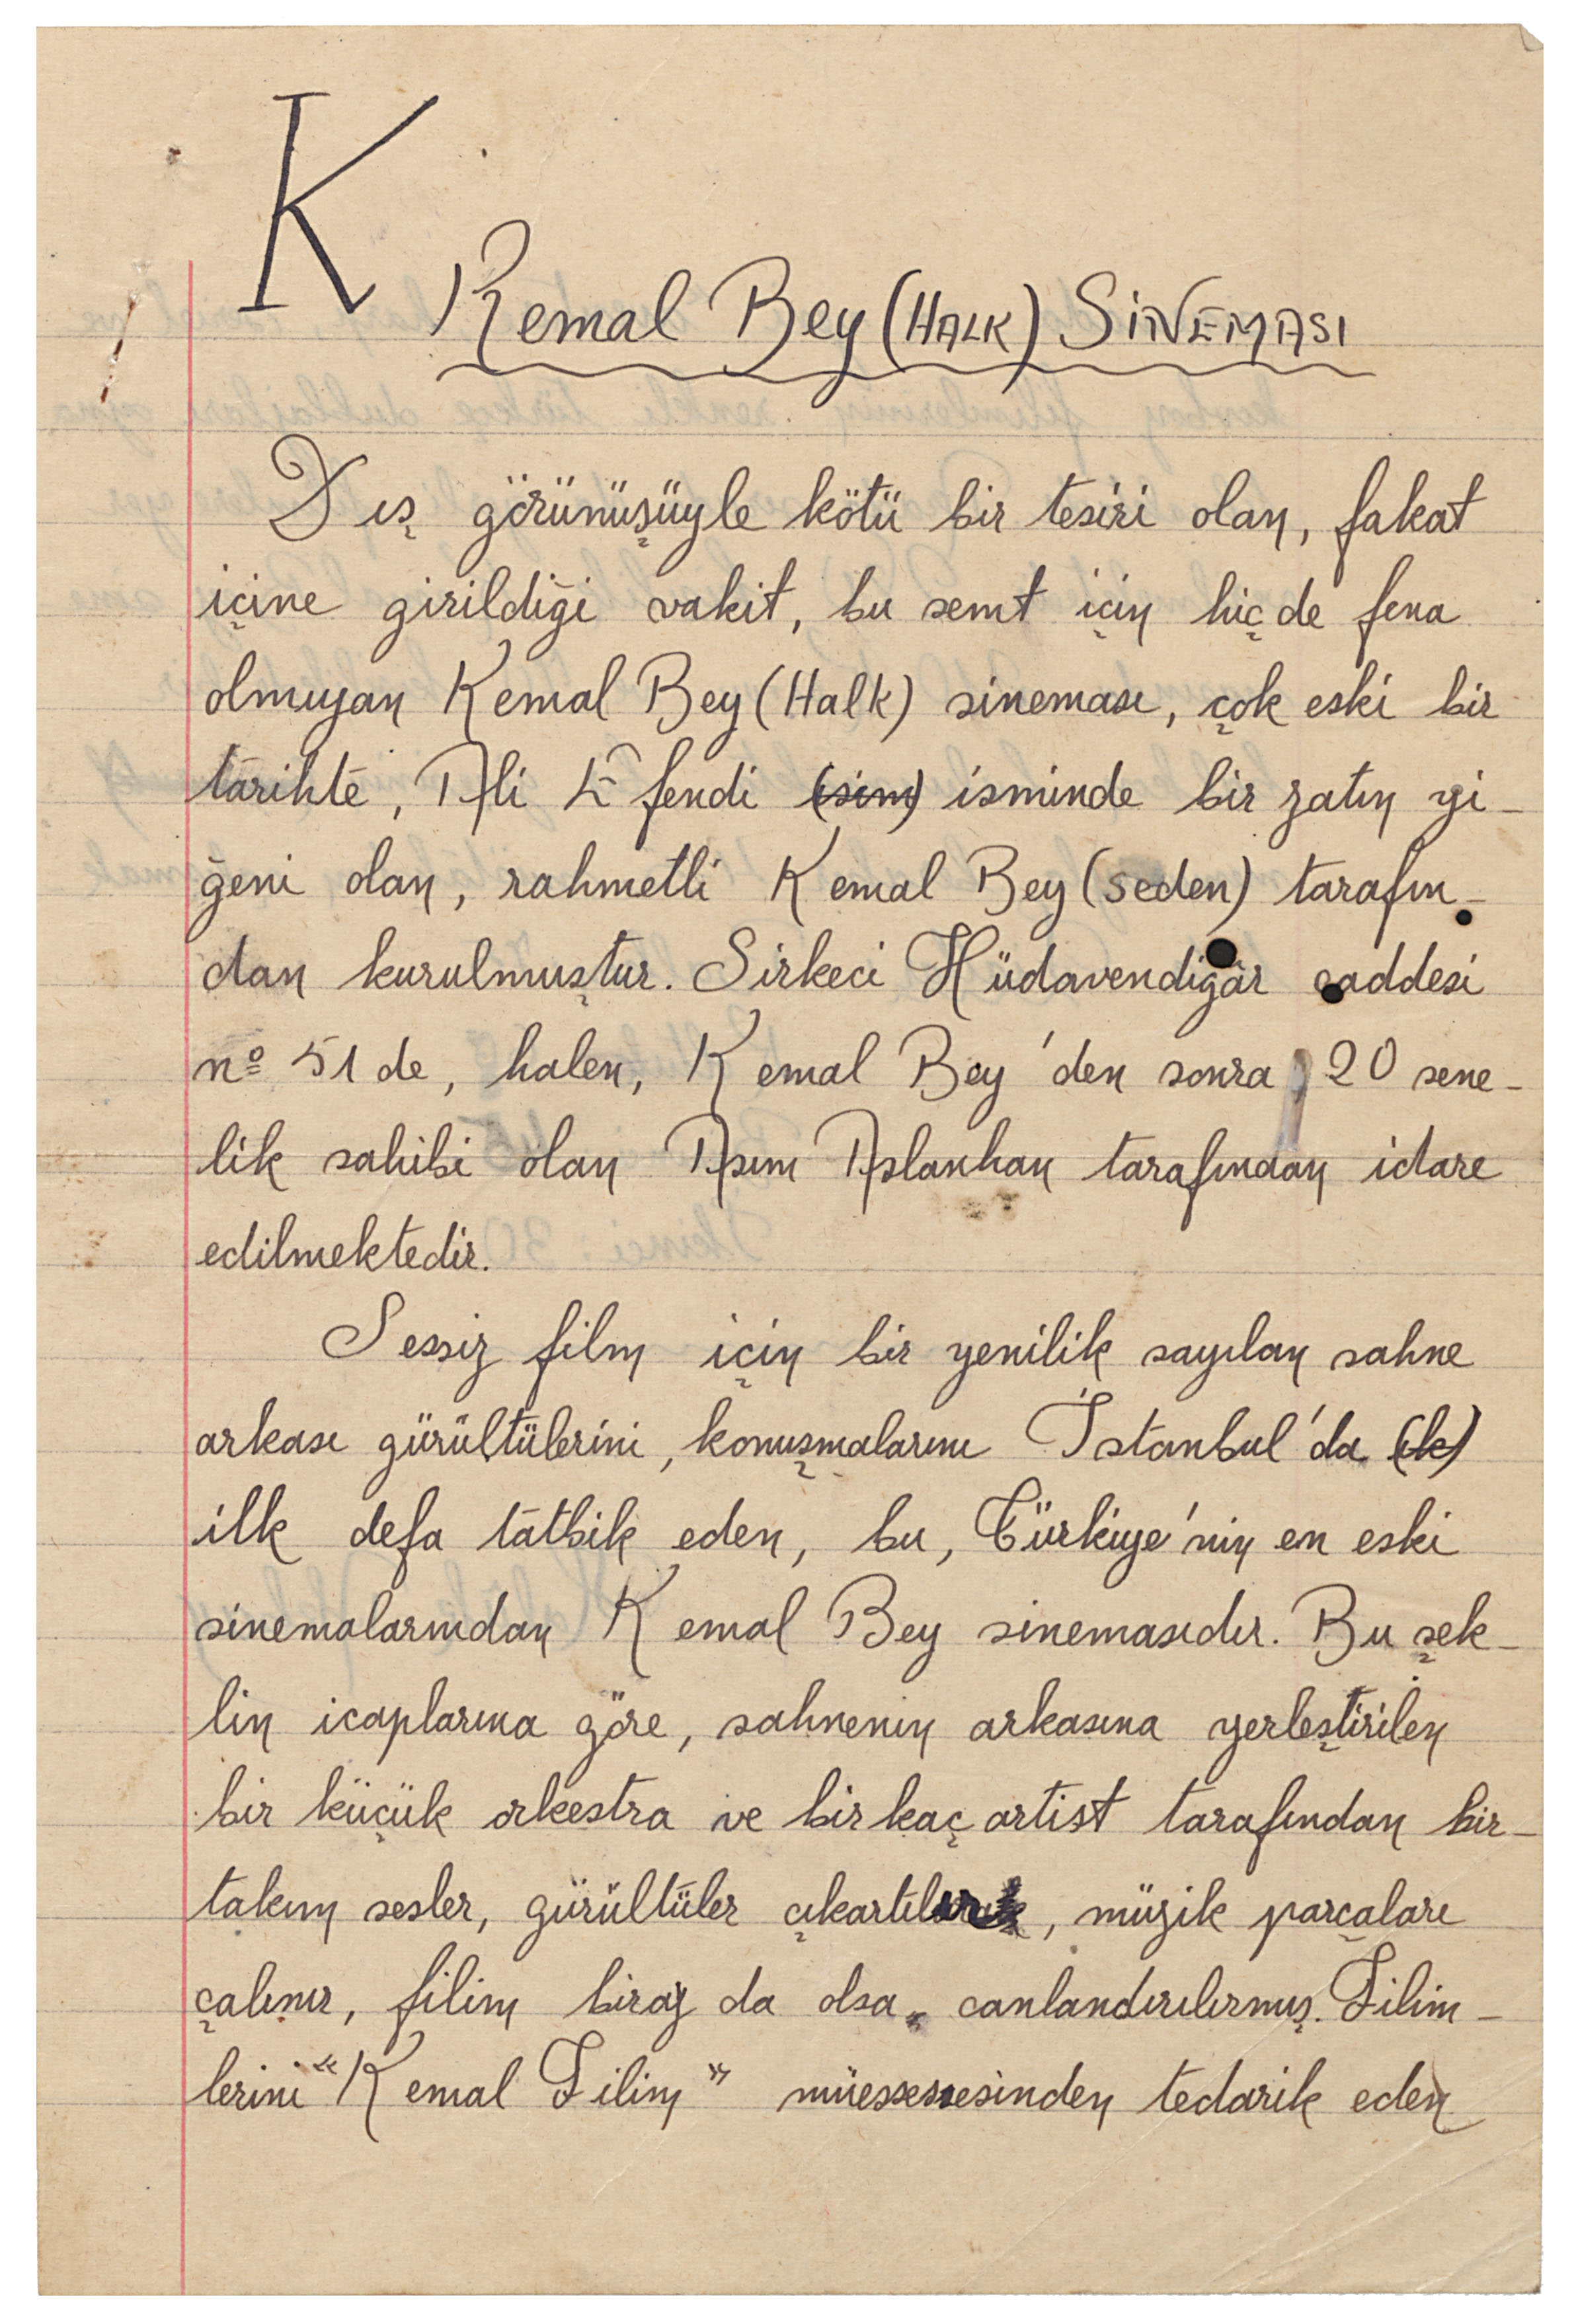 K
Kemal Bey (HALK) SİNEMASI
Dış görünüşüyle kötü bir tesiri olan, fakat
içine girildiği vakit, bu semt için hiç de fena
olmıyan Kemal Bey (Halk) sineması, çok eski bir
târihte, Ali Efendi (isim) isminde bir zatın yi-
ğeni olan, rahmetli Kemal Bey (seden) tarafın-
dan kurulmuştur. Sirkeci Hüdavendigâr caddesi
nº 51 de, halen, Kemal Bey'den sonra, 20 sene-
lik sahibi olan Asım Aslanhan tarafından idare
edilmektedir.
Sessiz film için bir yenilik sayılan sahne
arkası gürültülerini, konuşmalarını İstanbul'da (ik)
ilk defa tâtbik eden, bu, Türkiye'nin en eski
sinemalarından Kemal Bey sinemasıdır. Bu şek-
lin icaplarına göre, sahnenin arkasına yerleştirilen
bir küçük orkestra ve bir kaç artist tarafından bir-
takım sesler, gürültüler çıkartılarak, müzik parçaları
çalınır, filim biraz da olsa canlandırılırmış. Filim-
lerini "Kemal Filim" müessesesinden tedarik eden